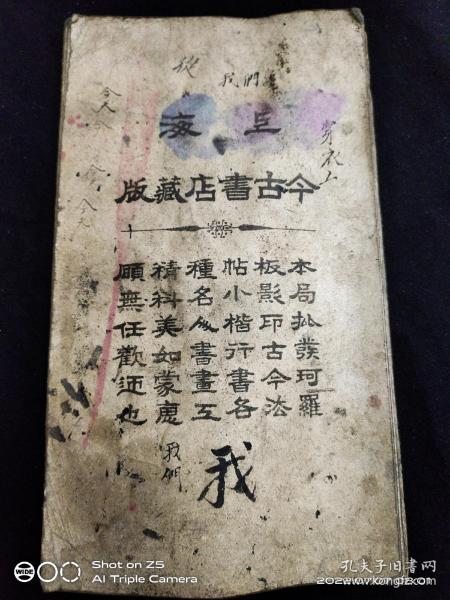 我們
上海
今古書店藏版
本局批發珂羅
板影印古今法
帖小楷行書各
種名人書畫工
精料美如蒙惠
顧無任歡迎也
穿衣
我們
我
WIDE
Shot on Z5
AI Triple Camera
孔夫子旧书网